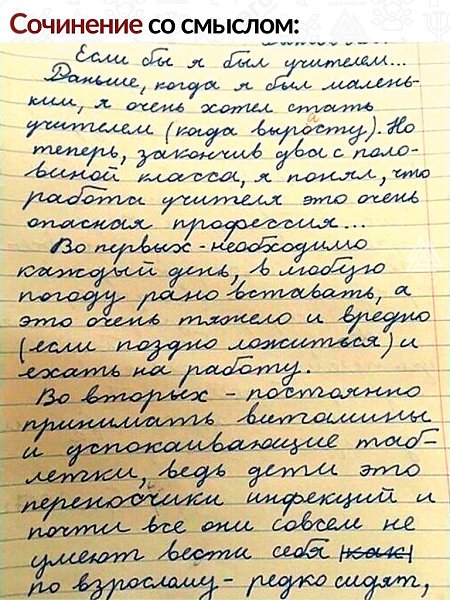 Сочинение со смыслом:
Если бы я был учителем...
Раньше, когда я был малень-
ким, я очень хотел стать
учителем (когда выросту). Но
теперь, закончив два с поло-
виной класса, я понял, что
работа учителя это очень
опасная профессия...
Во первых - необходимо
каждый день, в любую
погоду рано вставать, а
это очень тяжело и вредно
(если поздно ложиться) и
ехать на работу.
Во вторых - постоянно
принимать витамины
и успокаивающие таб-
летки, ведь дети это
переносчики инфекций и
почти все они совсем не
умеют вести себя как
по взрослому - редко сидят,